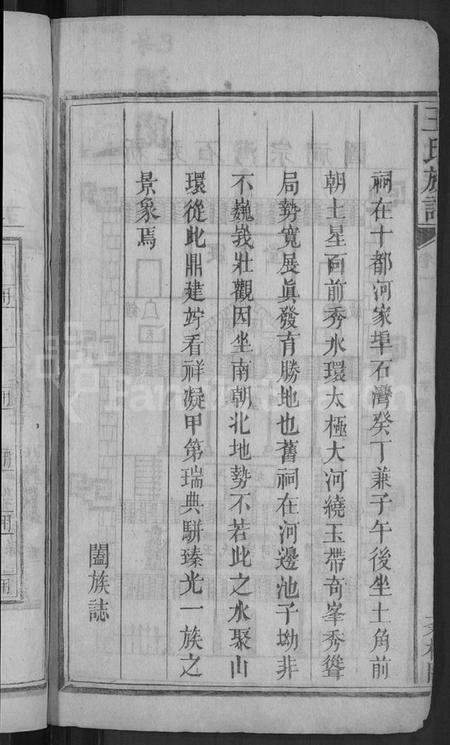 王氏族譜
祠在十都河家埠石灣癸丁兼子午後坐土角前
朝土星面前秀水環太極大河繞玉帶奇峯秀聳
局勢寬展眞發育勝地也舊祠在河邊池子坳非
不巍峩壯觀因坐南朝北地勢不若此之水聚山
環從此鼎建竚看祥凝甲第瑞典駢臻光一族之
景象焉
闔族誌